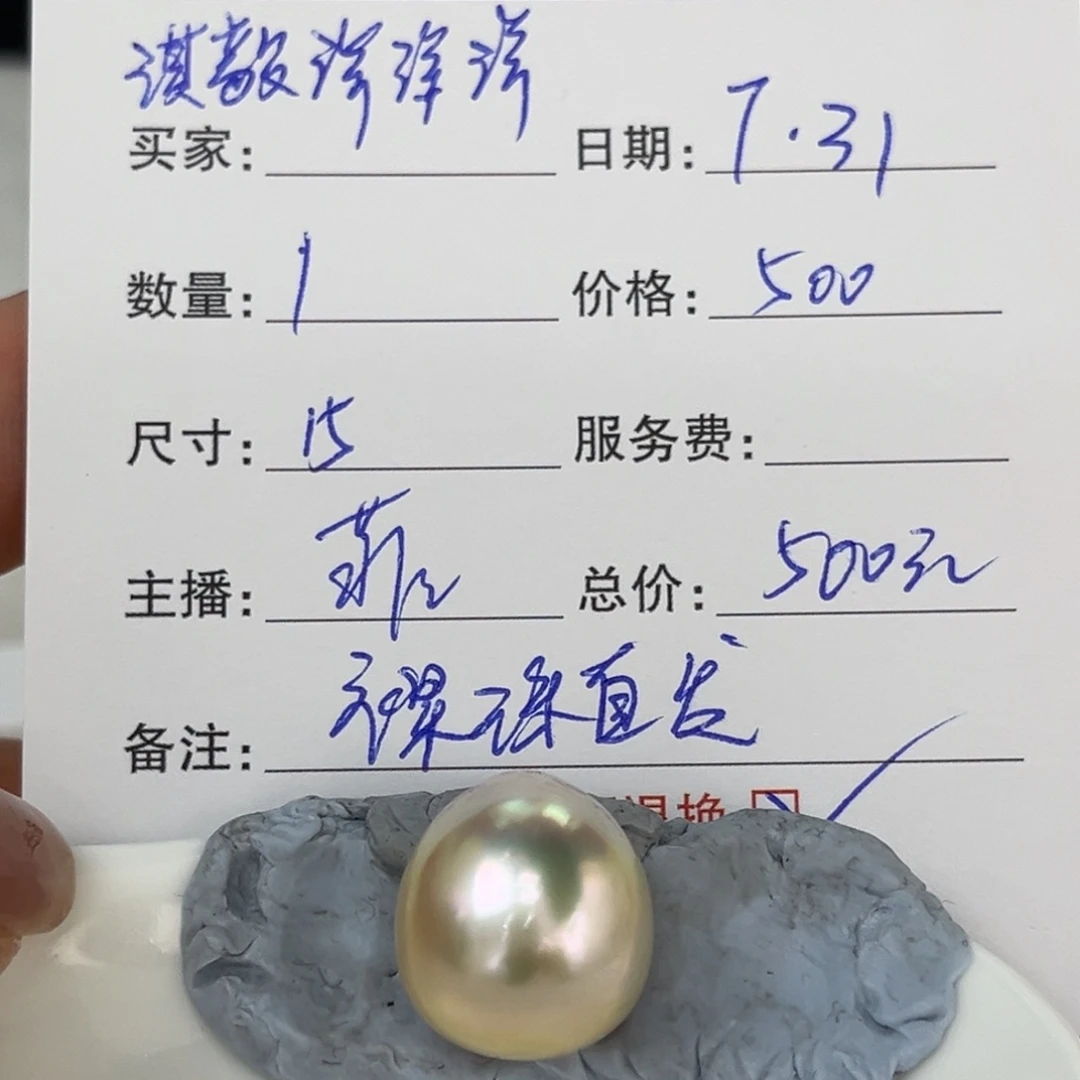 买家: 日期: 7.31
数量: 1 价格: 500
尺寸: 15 服务费:
主播: 菲儿 总价: 500元
备注: 裸珠直发
退换